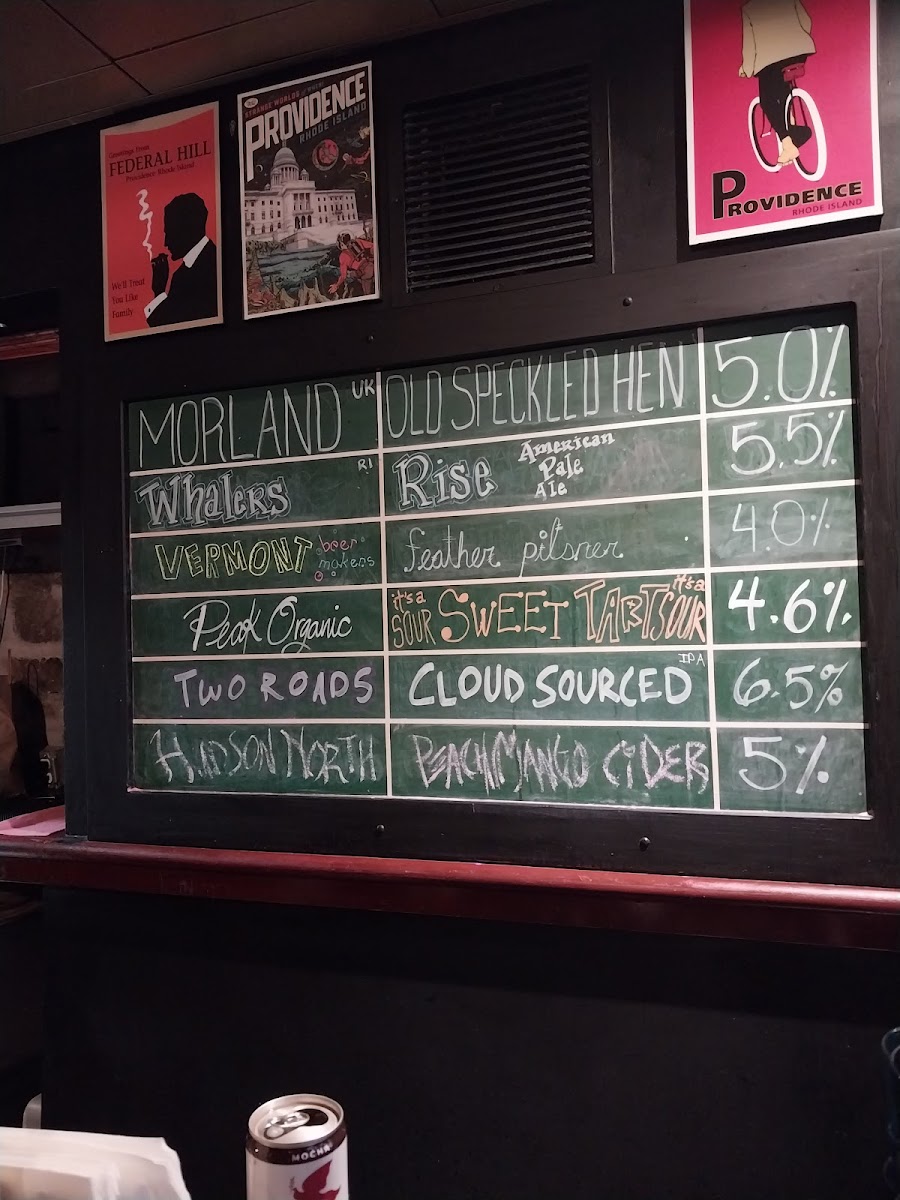 Greetings From
FEDERAL HILL
Providence Rhode Island
We'll Treat
You Like
Family
STRANGE WORLDS
PROVIDENCE
RHODE ISLAND
PROVIDENCE
RHODE ISLAND
MORLAND UK OLD SPECKLED HEN 5.0%
Whalers RI Rise American Pale Ale 5.5%
VERMONT beer makers feather pilsner 4.0%
Peak Organic it's a SOUR SWEET TART it's a SOUR 4.6%
TWO ROADS CLOUD SOURCED IPA 6.5%
HUDSON NORTH PEACH MANGO CIDER 5%
MOCHA